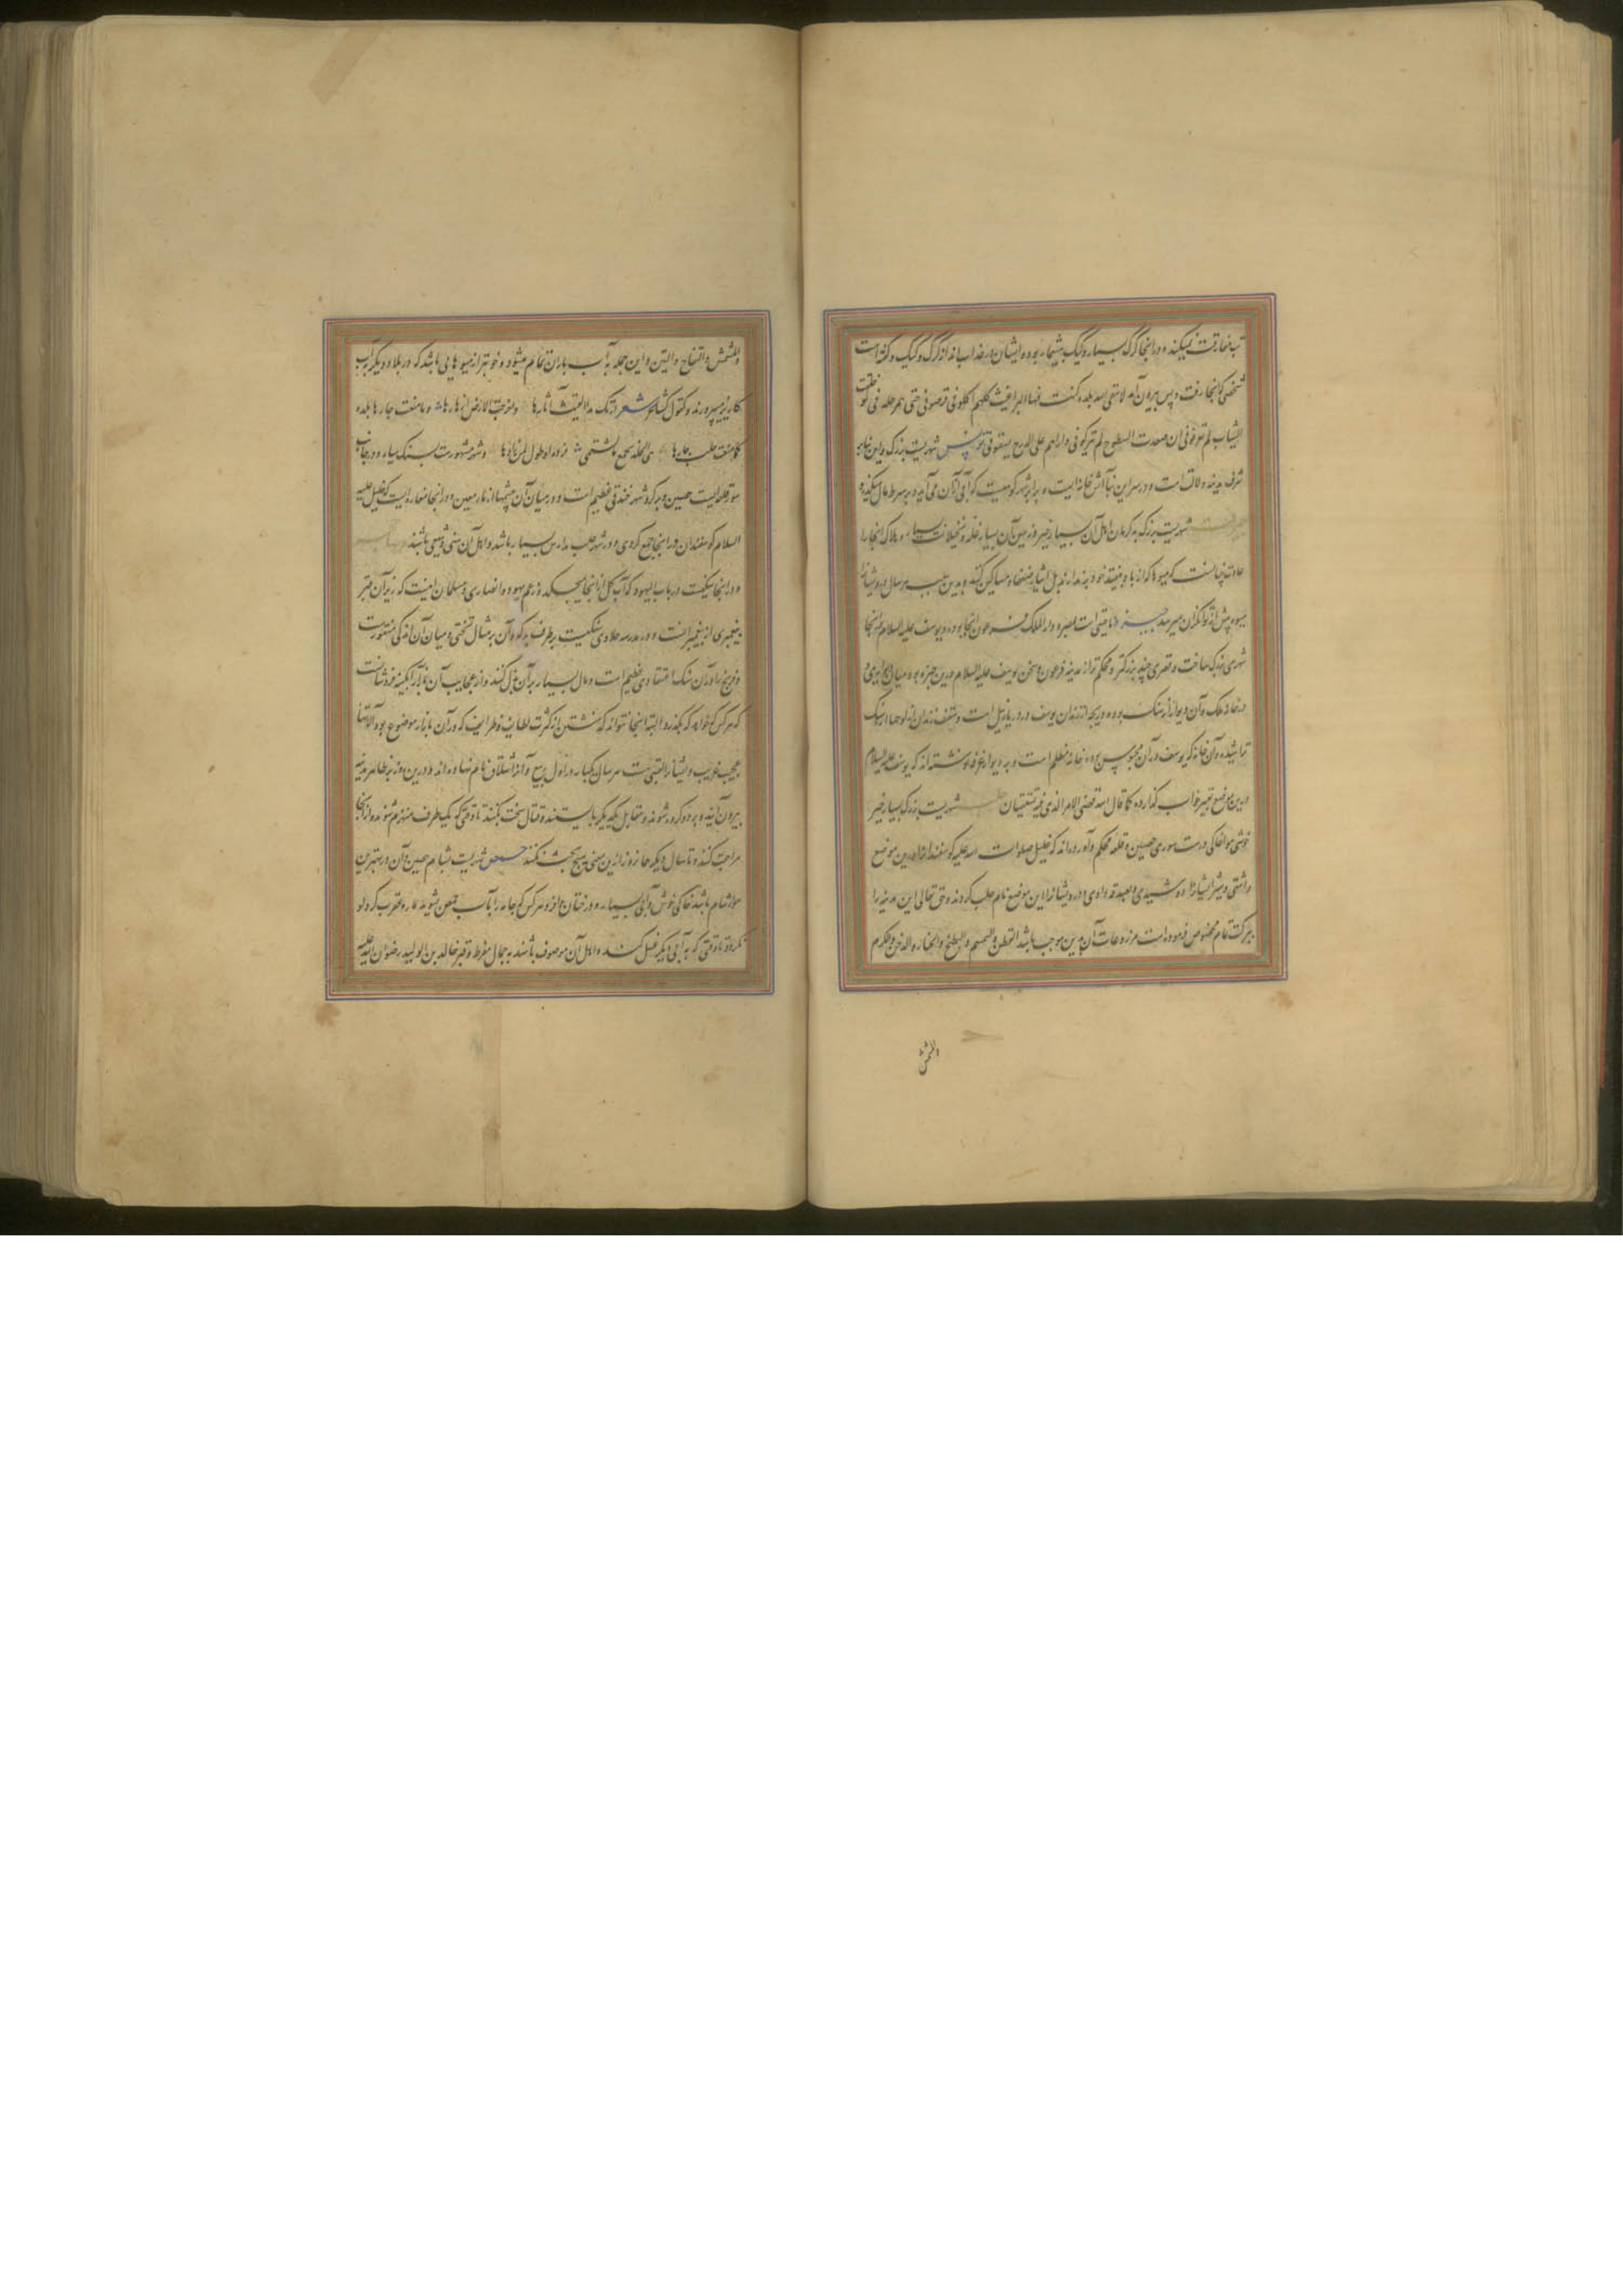 تب مفارقت نمیکند و در انجا گرگ بسیار و کیک بیشمار بوده و ایشان در عذاب باشند از گرگ و کیک و گفته است
شخصی که انجا رفت و پس بیرون آمد لا سقی الله بلدة کنت فیها البراغیث کلهم اکلونی قرصونی حتی نمر جلدی فی
الثیاب لم تعرفونی ان صعدت السطوح لم ترکونی واراهم علی الدرج یسبقونی شهریست بزرگ و این نام
شرف مدینه ولات است و در سر این بنا آتش خانه ایست و برابر شهر کوهیست که آبی از آن می آید و بر سر
شهریست بزرگ به کرمان اهل آن بسیار خیر و زمین آن بسیار غله و نخیلات بسیار و ملاک انجا را
عادت چنانست که میوها که از باد بیفتد خود بر ندارند بل ایثار ضعفا و مساکین کنند و بدین سبب هر سال درویشانرا
میوه پیش از توانگران میرسد جیزه ناحیتی است بمصر و دار الملک فرعون انجا بوده و یوسف علیه السلام انجا
شهری بزرگ ساخت و قصری چند بزرگتر و محکم تر از مدینه فرعون و سجن یوسف علیه السلام درین جیزه بوده میان
در خانه ملک و آن دیوار از سنگ بوده و دریچه از زندان یوسف در دریا نیل است و سقف زندان از لوحها از سنگ
تراشیده و آن خانه که یوسف در آن محبوس بوده خانه مظلم است و بر دیوار غرفه نوشته اند که یوسف علیه السلام
درین موضع تعبیر خواب گذارده کما قال الله قضی الامر الذی فیه تستفتیان حلب شهریست بزرگ بسیار خیر
خوش هوا خاکی درست سوری حصین و قلعه محکم و آورده اند که خلیل صلوات الله علیه گوسفندان را درین موضع
داشتی و شیر ایشانرا دوشیدی و بصدقه دادی و درویشانرا این موضع نام حلب کردند و حق تعالی این مدینه را
ببرکت تمام مخصوص فرموده است مزروعات آن بدین موجب باشد القطن والسمسم والبطیخ والخیار والدخن والکرم
والمشمش
والمشمش والتفاح والتین و این جمله به آب باران تمام میشود و خوبتر از میوهایی باشد که در بلاد دیگر به آب
کاریز پرورند و کقول کشاجم شعر ارتک ندا الغیث آثارها واخرجت الارض ازهارها وما منعت جارها بلدة
کما منعت حلب جارها هی الخلد یجمع ما تشتهی فزرها وطوبی لمن زارها و سور شهر است بسنگ سیاه و در جانب
سور قلعه ایست حصین و بر گرد شهر خندقی عظیم است و در میان آن چشمها از ماء معین و در انجا مغاره ایست که خلیل علیه
السلام گوسفندان در انجا جمع کردی و در شهر حلب مدارس بسیار باشد و اهل آن سنی و شیعی باشند
و در انجا سنگیست در باب الیهود که آب گل از انجا میچکد و زعم یهود و نصاری و مسلمان اینست که زیر آن قبر
پیغمبری از پیغمبرانست و در مدرسه حلاوی سنگیست بر طرف برکه و آن بر مثال تختی و میان آن اندکی منقورست
و فرنج را در آن سنگ اعتقادی عظیم است و مال بسیار بر آن بذل کنند و از عجایب آن بازار آبگینه فروشانست
که هر کس که خواهد که بگذرد البته انجا نتواند گذشتن از کثرت لطایف و طرایف که در آن بازار موضوع بود و آلاتها
عجیب غریب و ایشانرا لعبی هست هر سال یکبار در اول ربیع و آنرا شلاق نام نهاده اند و درین روز بظاهر مدینه
بیرون آیند و بر دو گروه شوند و مقابل یکدیگر بایستند و قتال سخت بکنند تا وقتی که یک طرف منهزم شوند و از انجا
مراجعت کنند و تا سال دیگر هم از روز ازین معنی هیچ بحث نکنند حمص شهریست بشام حصین و آن در بهترین
مواضع شام باشد خاکی خوش و آبی بسیار و درختان و از و هر کس که جامه را به آب حمص بشوید مار و عقرب گرد او
نگردد تا وقتی که به آبی دیگر غسل کنند و اهل آن موصوف باشند به جمال مفرط و قبر خالد بن الولید رضوان الله علیه